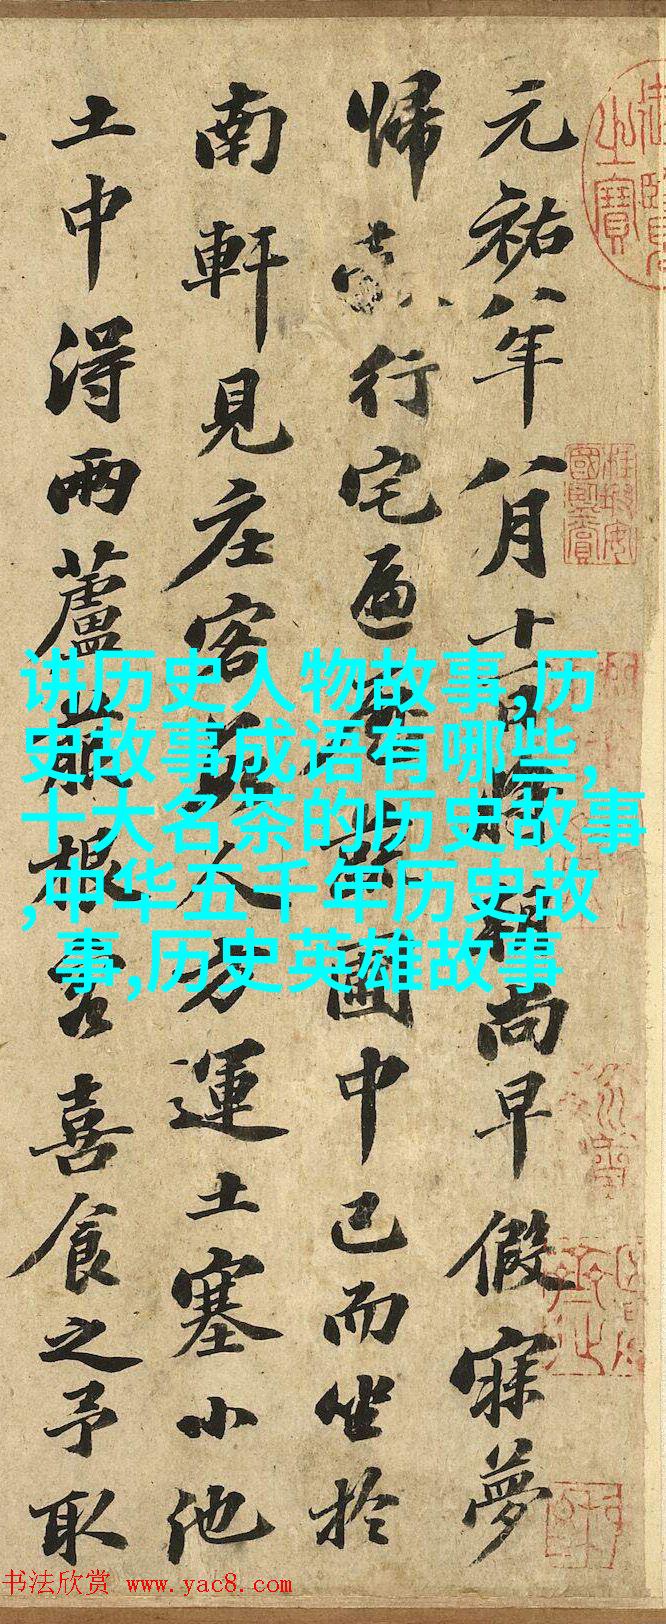 元祐八年八月十一日將朝尚早假寐夢
歸行宅遍圃中已而坐於
南軒見庄客數人方運土塞小池
土中得兩蘆菔根客喜食之予取
讲历史人物故事,历
史故事成语有哪些,
十大名茶的历史故事
,中华五千年历史故
事,历史英雄故事
书法欣赏 www.yac8.com